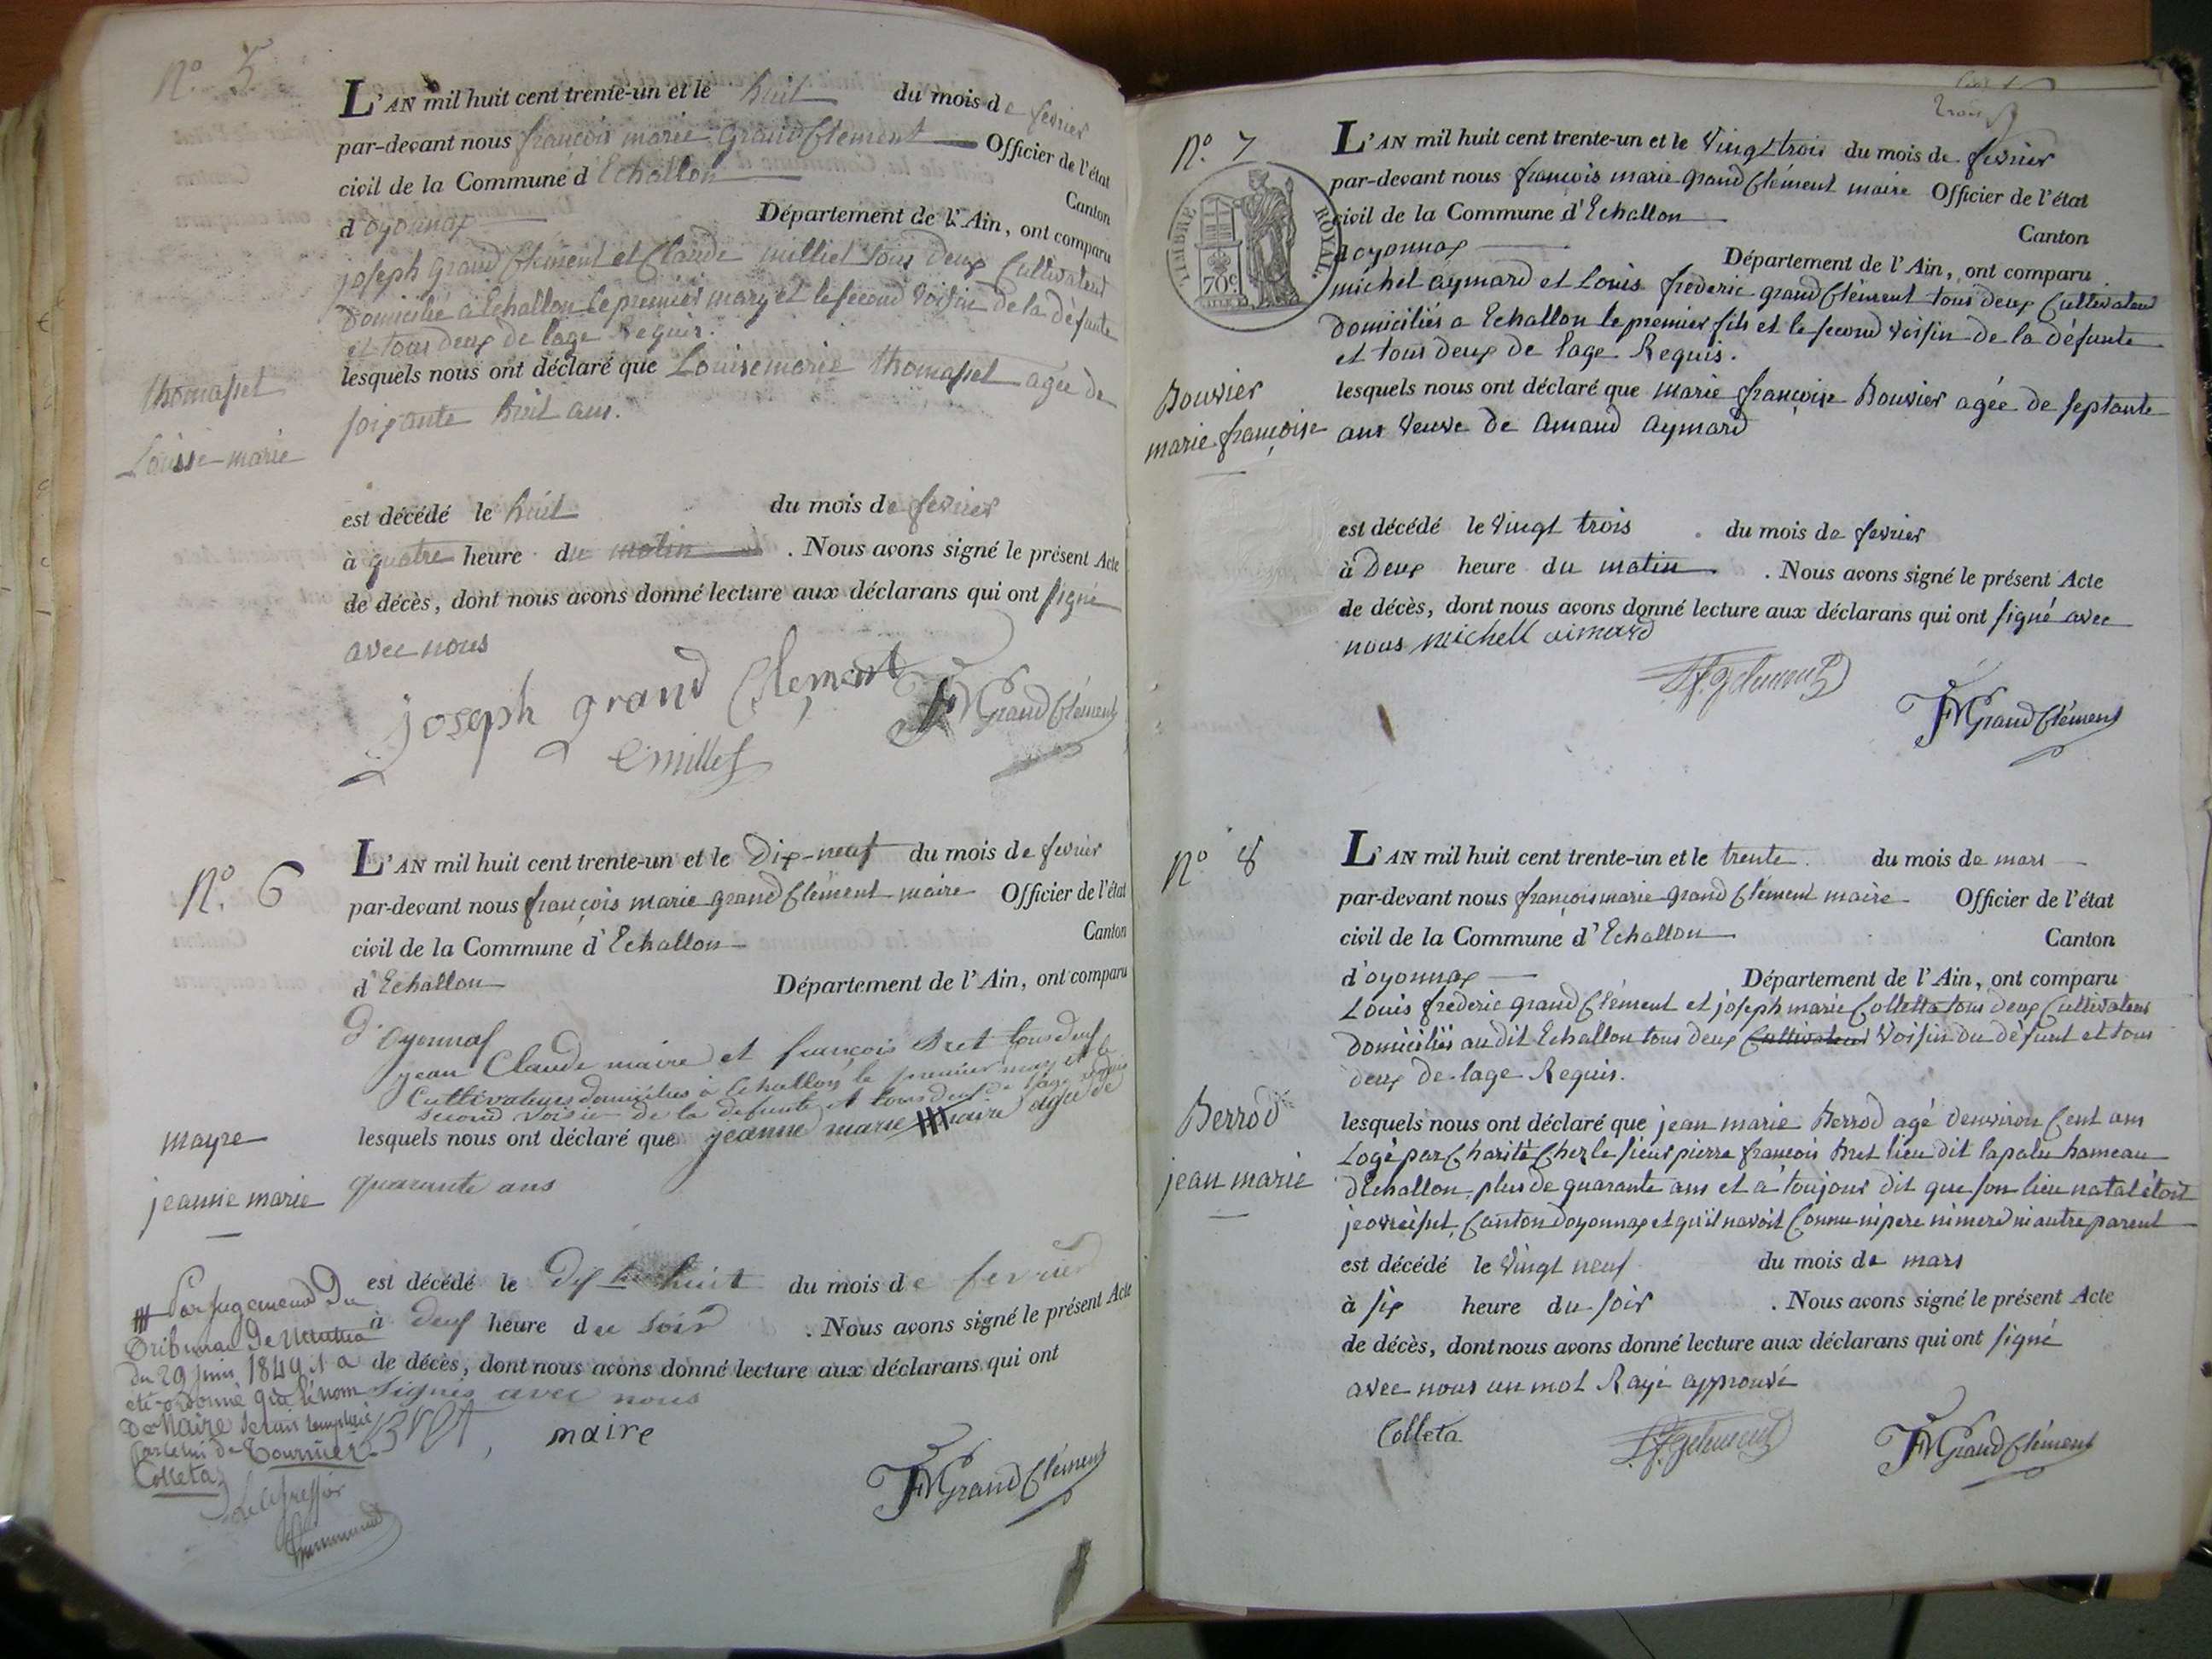 N.° 5
L'AN mil huit cent trente-un et le huit du mois de fevrier
par-devant nous françois marie Grand Clement Officier de l'état
civil de la Commune d'Echallon Canton
d'oyonnax Département de l'Ain, ont comparu
joseph grand Clément et Claude milliet tous deux Cultivateurs
Domicilié a Echallon le premier mary et le second voisin de la défunte
et tous deux de lage Requis.
thomasset
Louise marie
lesquels nous ont déclaré que Louise marie thomasset agée de
soixante huit ans.
est décédé le huit du mois de fevrier
à quatre heure du matin . Nous avons signé le présent Acte
de décès, dont nous avons donné lecture aux déclarans qui ont signé
avec nous
joseph grand Clement
FMGrandClément
N.° 6
L'AN mil huit cent trente-un et le Dix-neuf du mois de fevrier
par-devant nous françois marie grand Clément maire Officier de l'état
civil de la Commune d'Echallon Canton
d'Echallon Département de l'Ain, ont comparu
d'Oyonnax
jean Claude maire et françois Bret tous deux
Cultivateurs domiciliés à Echallon le premier mary et le
second voisin de la defunte et tous deux de l'age requis
mayre
jeanne marie
lesquels nous ont déclaré que jeanne marie maire agée de
quarante ans
est décédé le dix huit du mois de fevrier
à deux heure du soir . Nous avons signé le présent Acte
de décès, dont nous avons donné lecture aux déclarans qui ont
signés avec nous
Bret, maire
FMGrandClément
Par jugement du
Tribunal de Nantua
du 29 juin 1849 il a
été ordonné que le nom
De Maire serait remplacé
par celui de Tournier
Colleta
Le Greffier
N.° 7
TIMBRE ROYAL
70c
L'AN mil huit cent trente-un et le Vingt trois du mois de fevrier
par-devant nous françois marie grand Clément maire Officier de l'état
civil de la Commune d'Echallon Canton
d'oyonnax Département de l'Ain, ont comparu
michel aymard et Louis frederic grand Clément tous deux Cultivateurs
domiciliés a Echallon le premier fils et le second voisin de la défunte
et tous deux de lage Requis.
Bouvier
marie françoise
lesquels nous ont déclaré que marie françoise Bouvier agée de septante
ans Veuve de Amand Aymard
est décédé le vingt trois du mois de fevrier
à Deux heure du matin . Nous avons signé le présent Acte
de décès, dont nous avons donné lecture aux déclarans qui ont signé avec
nous michell aimard
FMGrandClément
N° 8
L'AN mil huit cent trente-un et le trente du mois de mars
par-devant nous françois marie grand Clément maire Officier de l'état
civil de la Commune d'Echallon Canton
d'oyonnax Département de l'Ain, ont comparu
Louis frederic grand Clément et joseph marie Colletta tous deux Cultivateurs
Domiciliés au dit Echallon tous deux Cultivateurs Voisin du défunt et tous
deux de lage Requis.
Berrod
jean marie
lesquels nous ont déclaré que jean marie Berrod agé denviron Cent ans
Logé par Charité Chez le sieur pierre françois Bret lieu dit lapalu hameau
dEchallon, plus de quarante ans et a toujour dit que son lieu natal étoit
jeovreisset, Canton doyonnax et qu'il navoit Connu ni pere ni mere ni autre parent
est décédé le vingt neuf du mois de mars
à six heure du soir . Nous avons signé le présent Acte
de décès, dont nous avons donné lecture aux déclarans qui ont signé
avec nous un mot Rayé approuvé
Colleta
FMGrandClément